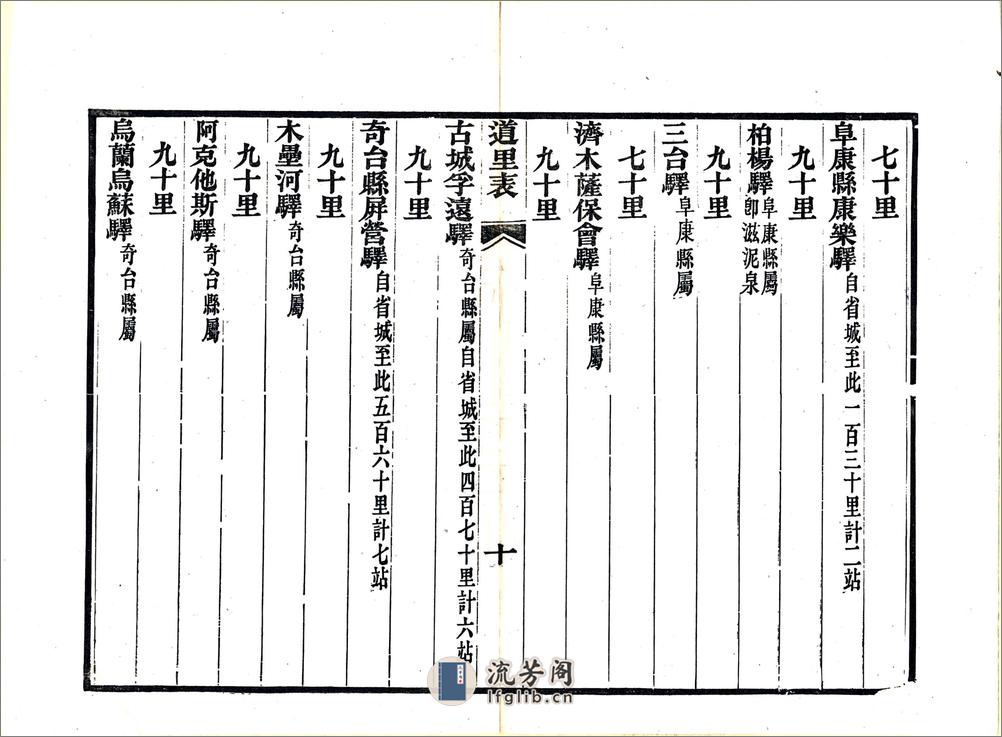 七十里
阜康縣康樂驛自省城至此一百三十里計二站
九十里
柏楊驛阜康縣屬卽滋泥泉
九十里
三台驛阜康縣屬
七十里
濟木薩保會驛阜康縣屬
九十里
道里表 十
古城孚遠驛奇台縣屬自省城至此四百七十里計六站
九十里
奇台縣屏營驛自省城至此五百六十里計七站
九十里
木壘河驛奇台縣屬
九十里
阿克他斯驛奇台縣屬
九十里
烏蘭烏蘇驛奇台縣屬
流芳阁
lfglib.cn